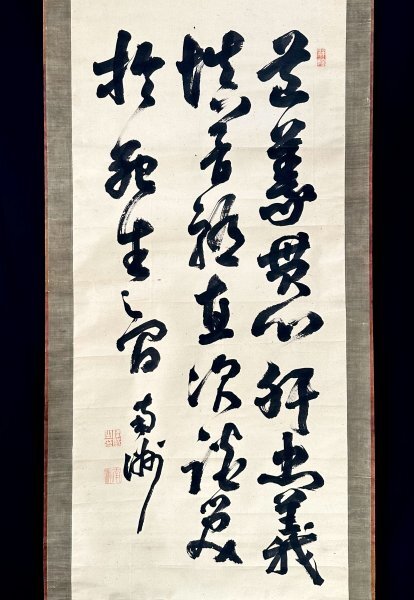 道義貫心肝忠義
填骨髄直須談笑
於死生之間
南洲